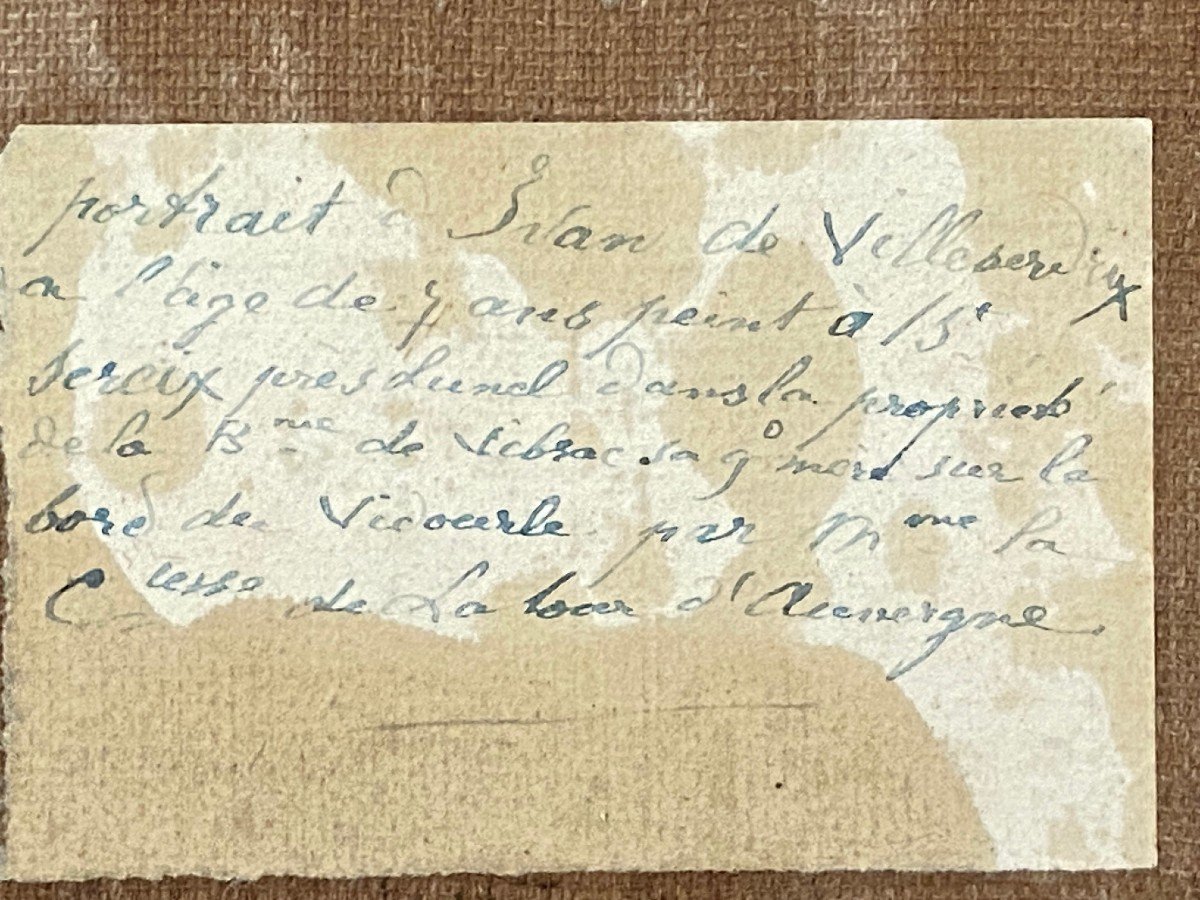 portrait d Ivan de Villeseri
a l'âge de 7 ans peint à St
Sereix près Lunel dans la propriété
de la Bnne de Vibrac sa gd mère sur la
bord du Vidourle par Mme la
Ctesse de La tour d'Auvergne.